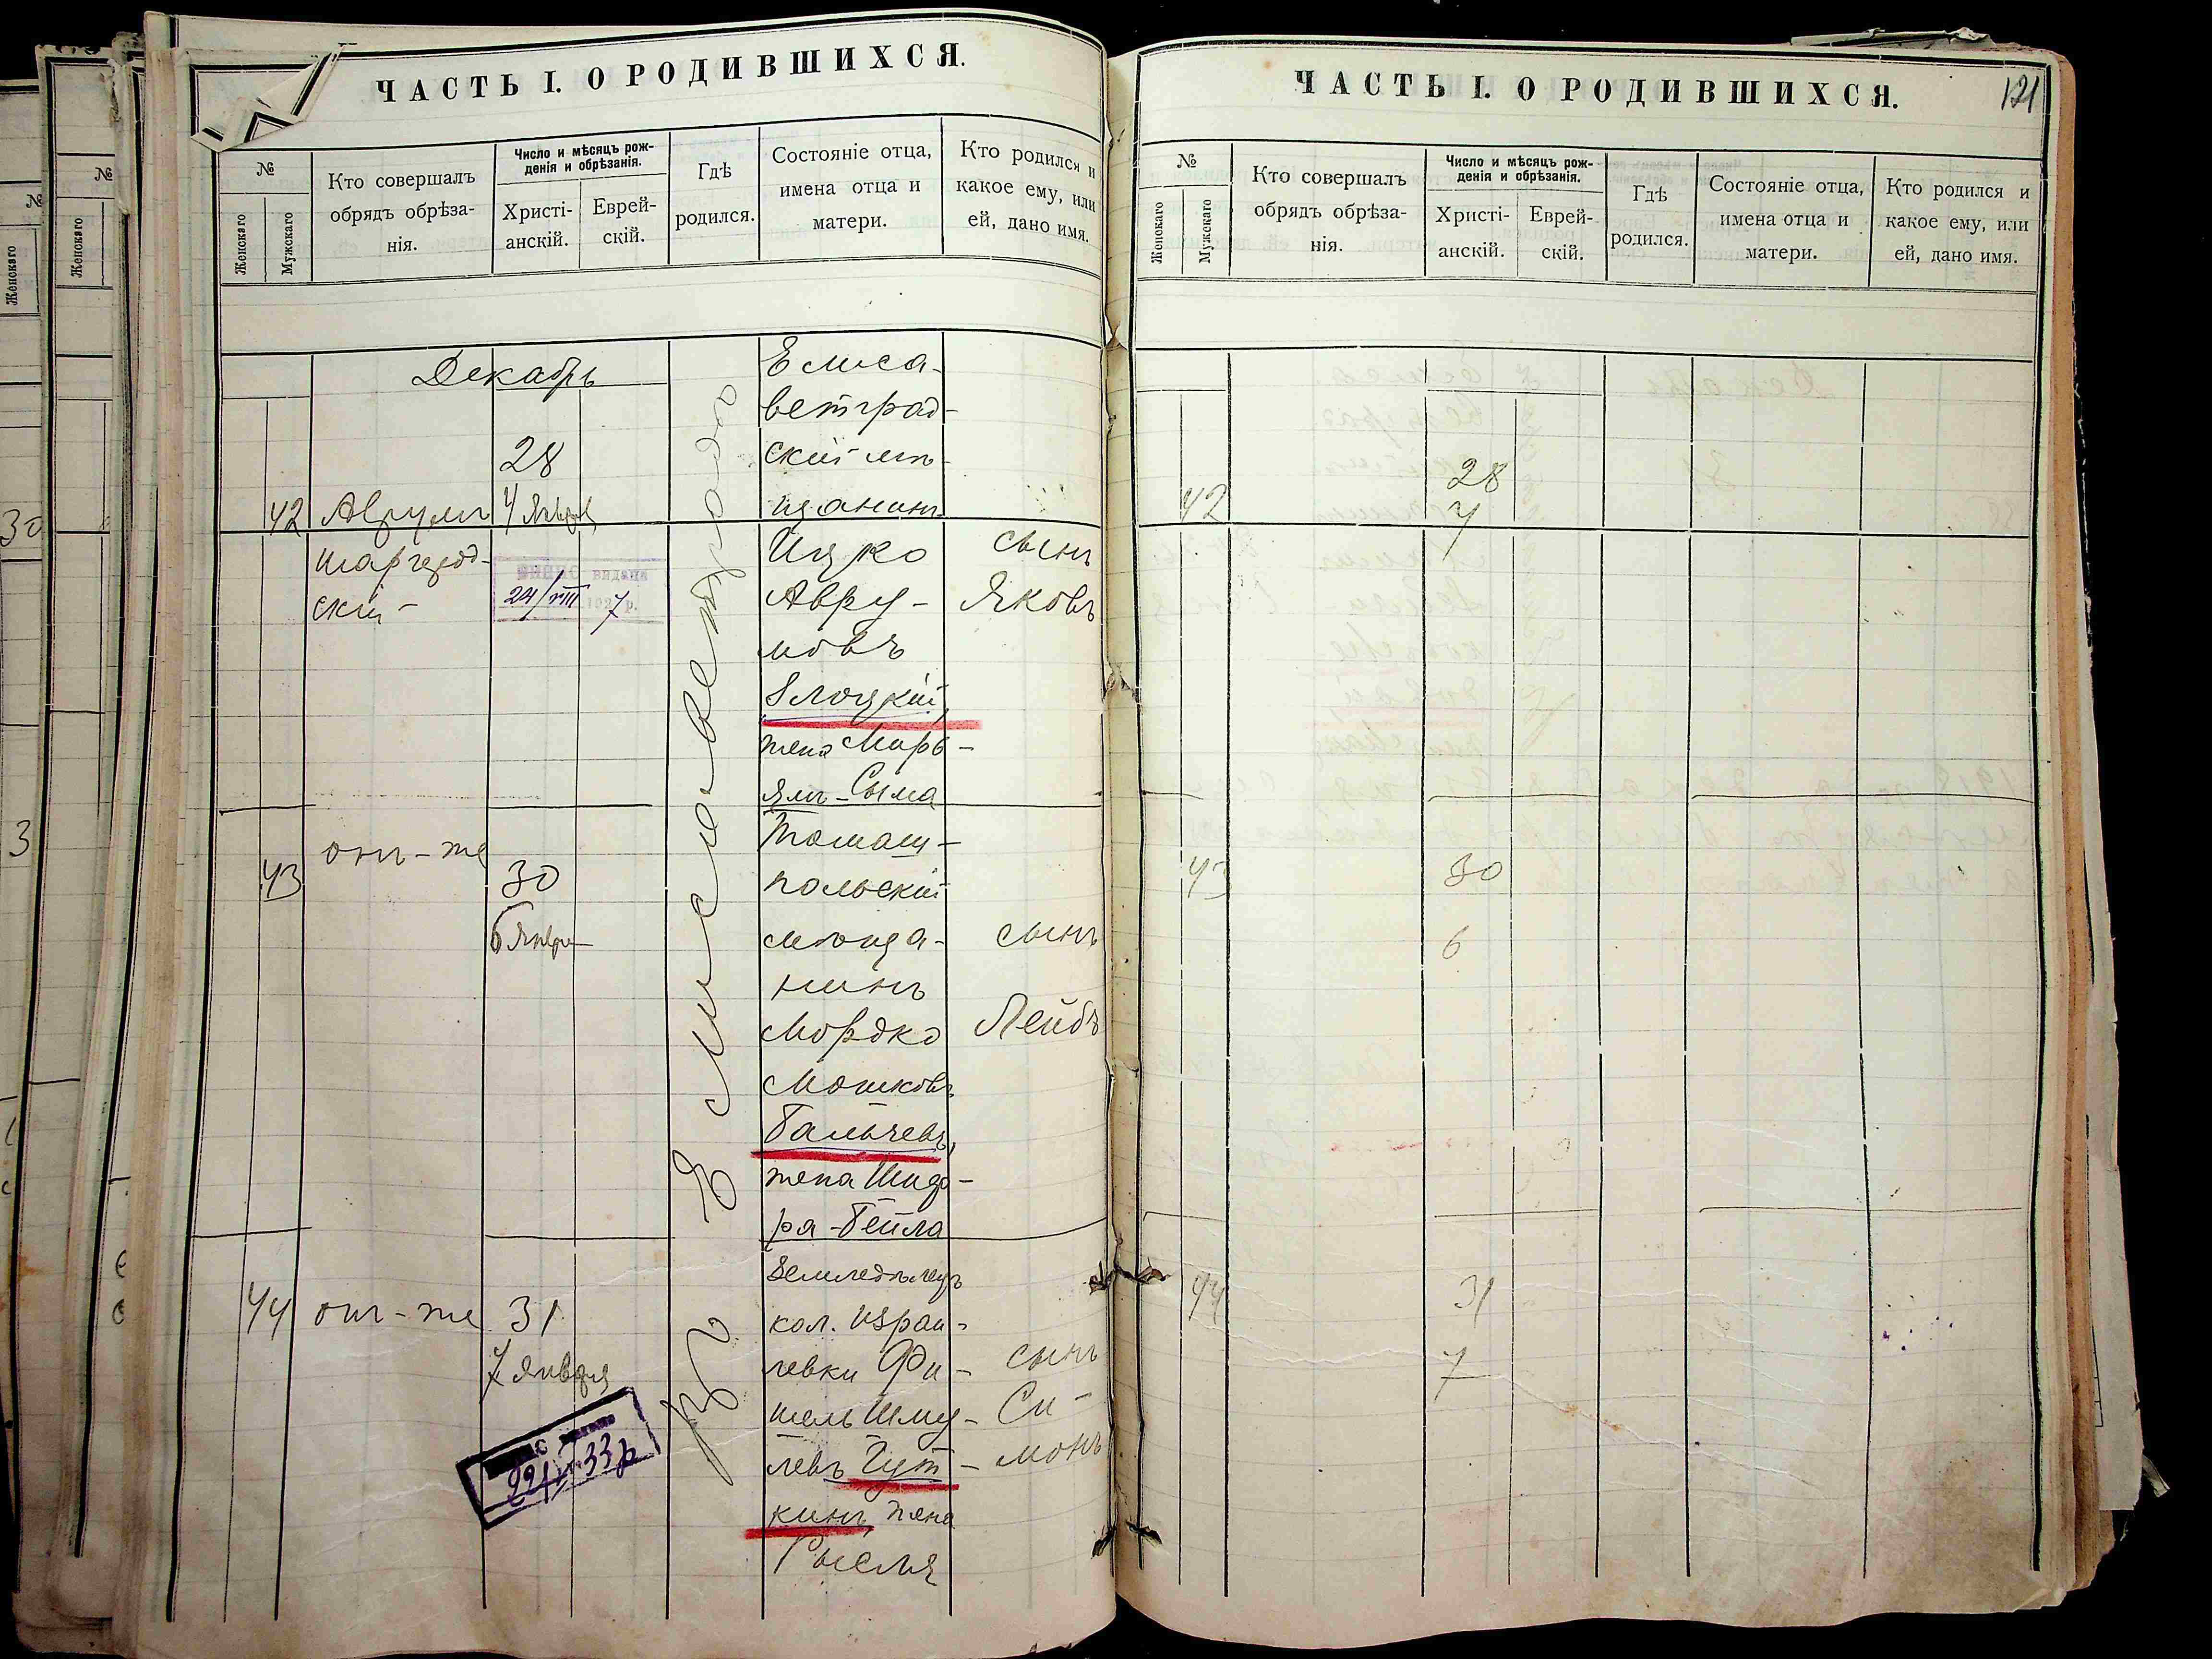 ЧАСТЬ I. О РОДИВШИХСЯ.
№
Женскаго
Мужскаго
Кто совершалъ
обрядъ обрѣза-
нія.
Число и мѣсяцъ рож-
денія и обрѣзанія.
Христі-
анскій.
Еврей-
скій.
Гдѣ
родился.
Состояніе отца,
имена отца и
матери.
Кто родился и
какое ему, или
ей, дано имя.
Декабрь
Въ Елисаветградѣ
42
Аврумъ
Шаргород-
скій
28
4 Январ
видана
24/VIII 1927 р.
Елиса-
ветград-
скій мѣ-
щанинъ
Ицко
Авру-
мовъ
Злоцкій,
жена Марь-
ямъ-Сыма
сынъ
Яковъ
43
онъ-же
30
6 Январ
Томаш-
польскій
мѣща-
нинъ
Мордко
Мошковъ
жена Шиф-
ра-Бейла
сынъ
Лейбъ
44
онъ-же
31
7 Января
33 р
Земледѣлецъ
кол. Израи-
левки Фи-
шель Шму-
левъ Гут-
кинъ, жена
Рысля
сынъ
Си-
монъ
ЧАСТЬ I. О РОДИВШИХСЯ.
121
№
Женскаго
Мужскаго
Кто совершалъ
обрядъ обрѣза-
нія.
Число и мѣсяцъ рож-
денія и обрѣзанія.
Христі-
анскій.
Еврей-
скій.
Гдѣ
родился.
Состояніе отца,
имена отца и
матери.
Кто родился и
какое ему, или
ей, дано имя.
42
28
4
43
30
6
44
31
7
№
Женскаго
№
Женскаго
30
3